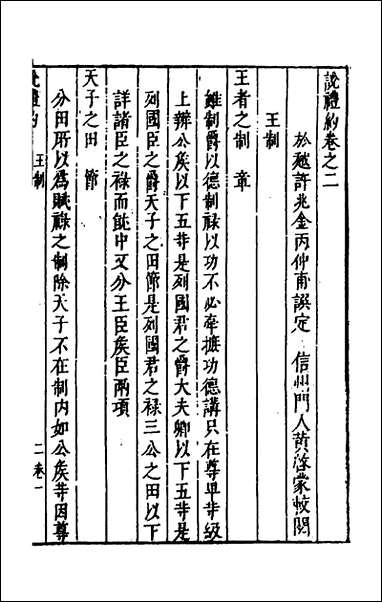 說禮約卷之二
於越許兆金丙仲甫譔定　信州門人黃啓蒙較閱
王制
王者之制　章
雖制爵以德制祿以功不必牽摭功德講只在尊卑等級
上辨公矦以下五等是列國君之爵大夫卿以下五等是
列國臣之爵天子之田節是列國君之祿三公之田以下
詳諸臣之祿而就中又分王臣矦臣兩項
天子之田　節
分田所以爲賦祿之制除天子不在制內如公矦等因尊
說禮約　王制　二卷一